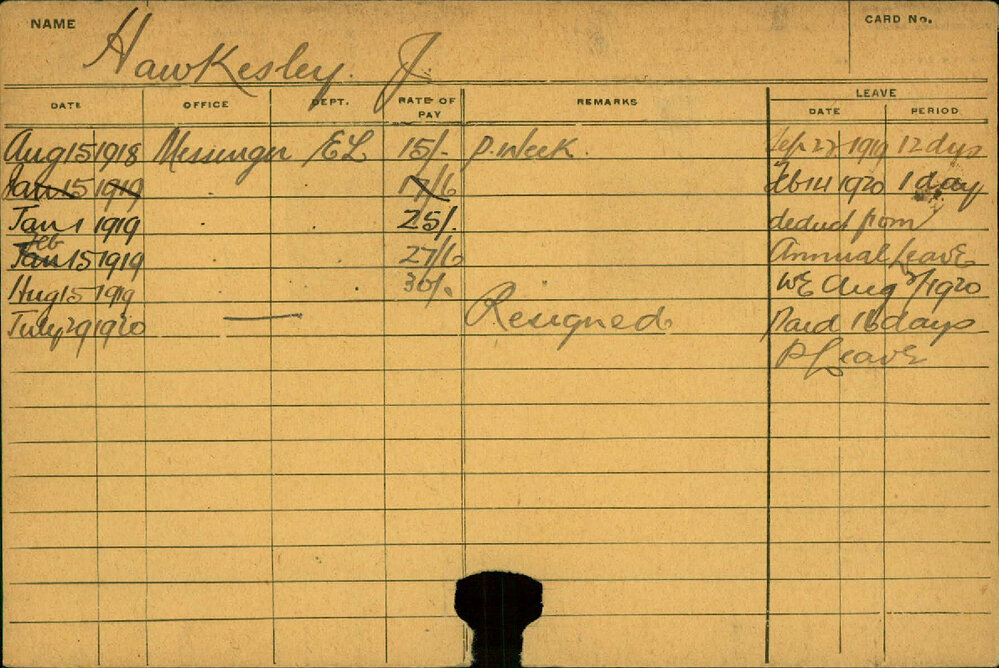 NAME Hawkesley. J. CARD No.
DATE OFFICE DEPT. RATE OF PAY REMARKS LEAVE DATE PERIOD
Aug 15 1918 Messenger EL 15/- p. Week. Sep 27 1919 12 dys
Jan 15 1919 17/6 Feb 14 1920 1 day
Jan 1 1919 25/. deduct from
Feb 15 1919 27/6 Annual Leave
Aug 15 1919 30/. WE Aug 1920
July 29 1920 — Resigned Paid 16 days
P Leave